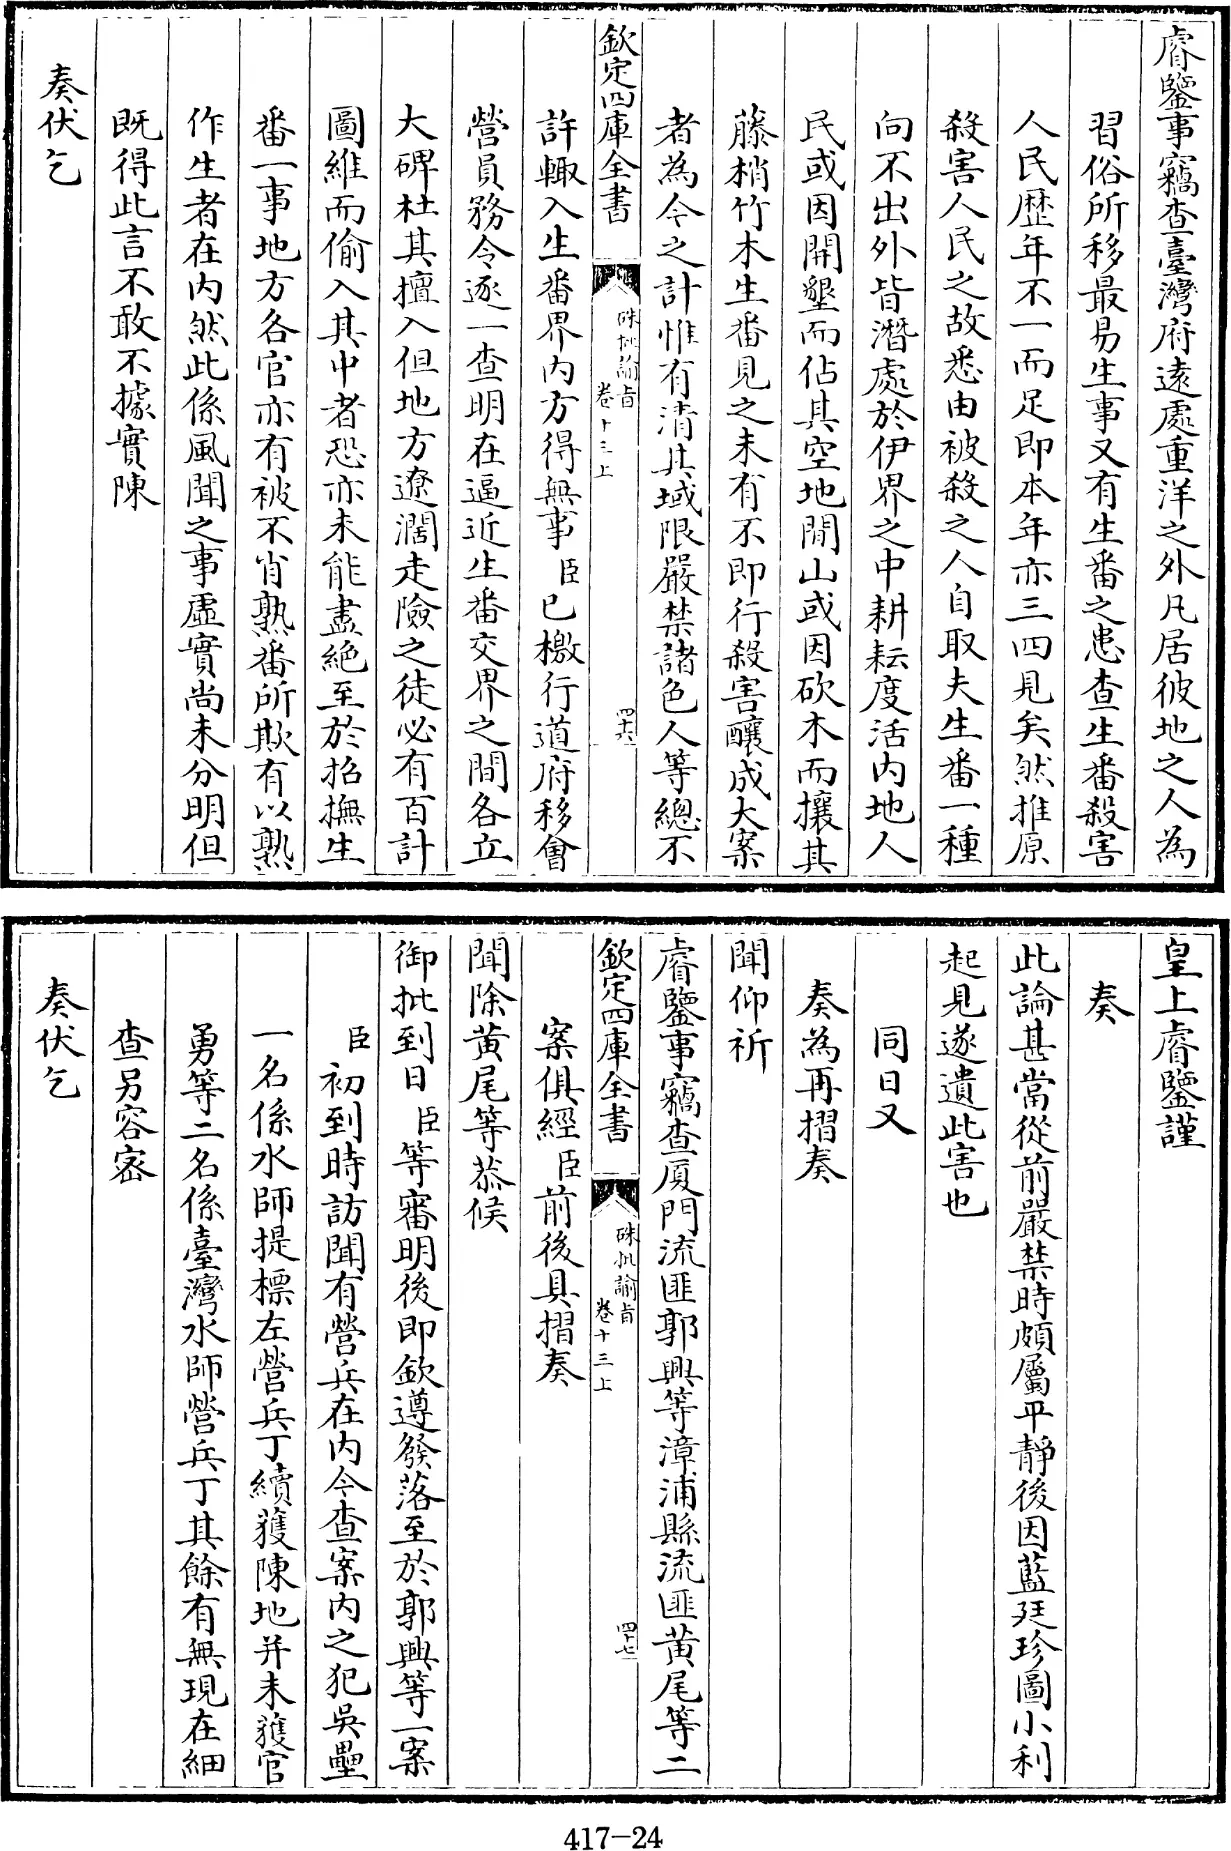 睿鑒事竊查臺灣府遠處重洋之外凡居彼地之人為
習俗所移最易生事又有生番之患查生番殺害
人民歷年不一而足即本年亦三四見矣然推原
殺害人民之故悉由被殺之人自取夫生番一種
向不出外皆潛處於伊界之中耕耘度活內地人
民或因開墾而佔其空地閒山或因砍木而攘其
藤梢竹木生番見之未有不即行殺害釀成大案
者為今之計惟有清其域限嚴禁諸色人等總不
欽定四庫全書
硃批諭旨
卷十三上
四十六
許輙入生番界內方得無事臣已檄行道府移會
營員務令逐一查明在逼近生番交界之間各立
大碑杜其擅入但地方遼濶走險之徒必有百計
圖維而偷入其中者恐亦未能盡絕至於招撫生
番一事地方各官亦有被不肖熟番所欺有以熟
作生者在內然此係風聞之事虛實尚未分明但
既得此言不敢不據實陳
奏伏乞
皇上睿鑒謹
奏
此論甚當從前嚴禁時頗屬平靜後因藍廷珍圖小利
起見遂遺此害也
同日又
奏為再摺奏
聞仰祈
睿鑒事竊查厦門流匪郭興等漳浦縣流匪黃尾等二
欽定四庫全書
硃批諭旨
卷十三上
四十七
案俱經臣前後具摺奏
聞除黃尾等恭候
御批到日臣等審明後即欽遵發落至於郭興等一案
臣初到時訪聞有營兵在內今查案內之犯吳壘
一名係水師提標左營兵丁續獲陳地并未獲官
勇等二名係臺灣水師營兵丁其餘有無現在細
查另容密
奏伏乞
417-24